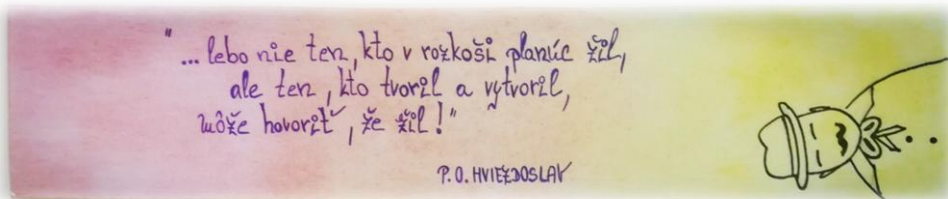 "... lebo nie ten, kto v rozkoši planúc žil,
ale ten, kto tvoril a vytvoril,
môže hovoriť, že žil!"
P. O. HVIEZDOSLAV